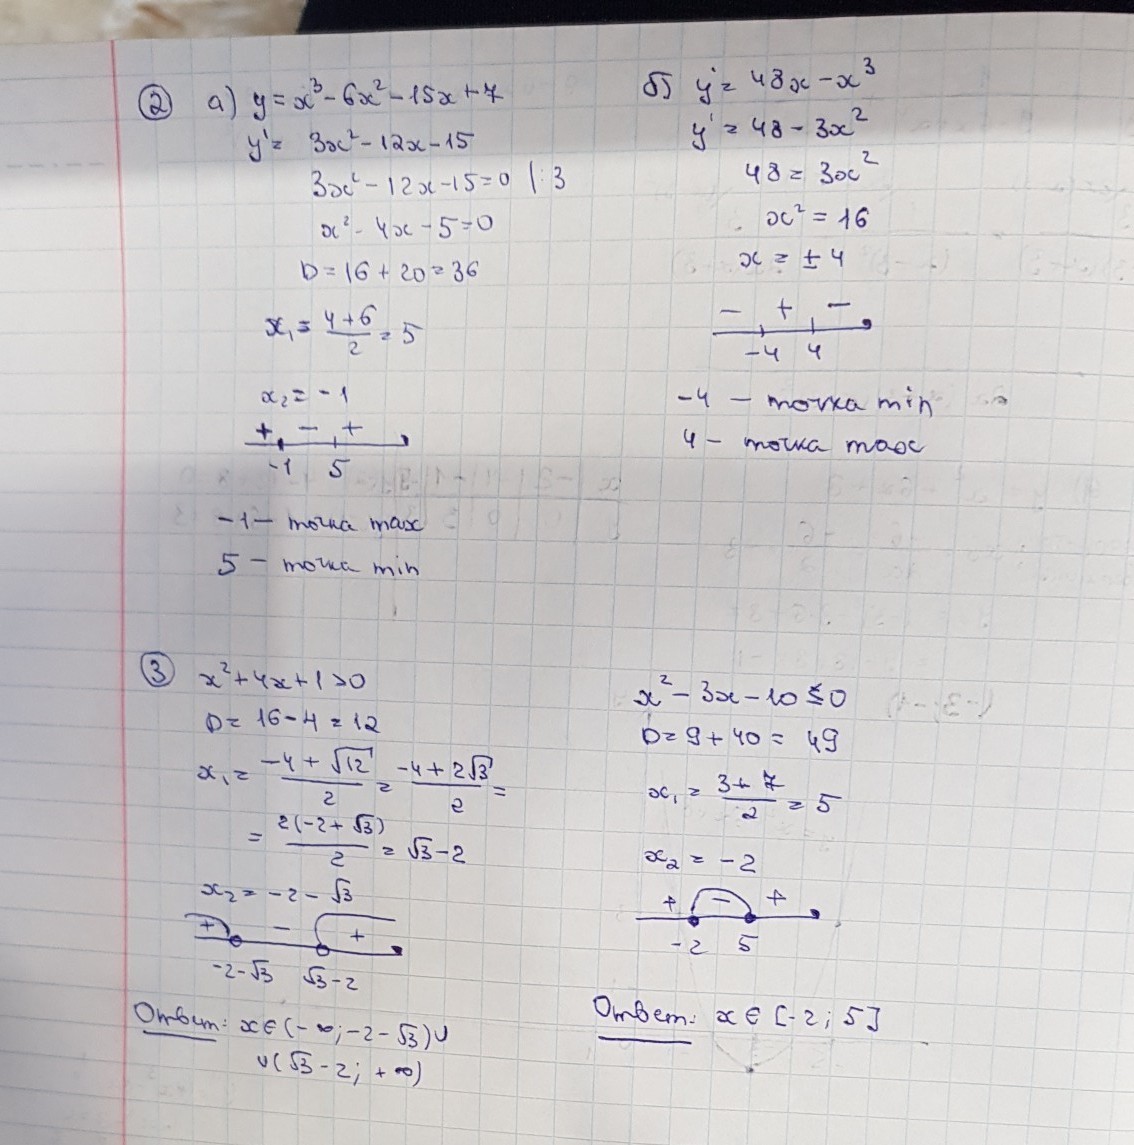 ② а) y = x³ - 6x² - 15x + 7
y' = 3x² - 12x - 15
3x² - 12x - 15 = 0 | : 3
x² - 4x - 5 = 0
D = 16 + 20 = 36
x₁ = (4 + 6)/2 = 5
x₂ = - 1
+ - +
-1 5
-1 - точка max
5 - точка min
б) y' = 48x - x³
y' = 48 - 3x²
48 = 3x²
x² = 16
x = ± 4
- + -
-4 4
-4 - точка min
4 - точка max
③ x² + 4x + 1 > 0
D = 16 - 4 = 12
x₁ = (-4 + √12)/2 = (-4 + 2√3)/2 =
= 2(-2 + √3)/2 = √3 - 2
x₂ = -2 - √3
+ - +
-2-√3 √3-2
Ответ: x ∈ (-∞; -2 - √3) ∪
∪ (√3 - 2; +∞)
x² - 3x - 10 ≤ 0
D = 9 + 40 = 49
x₁ = (3 + 7)/2 = 5
x₂ = -2
+ - +
-2 5
Ответ: x ∈ [-2; 5]